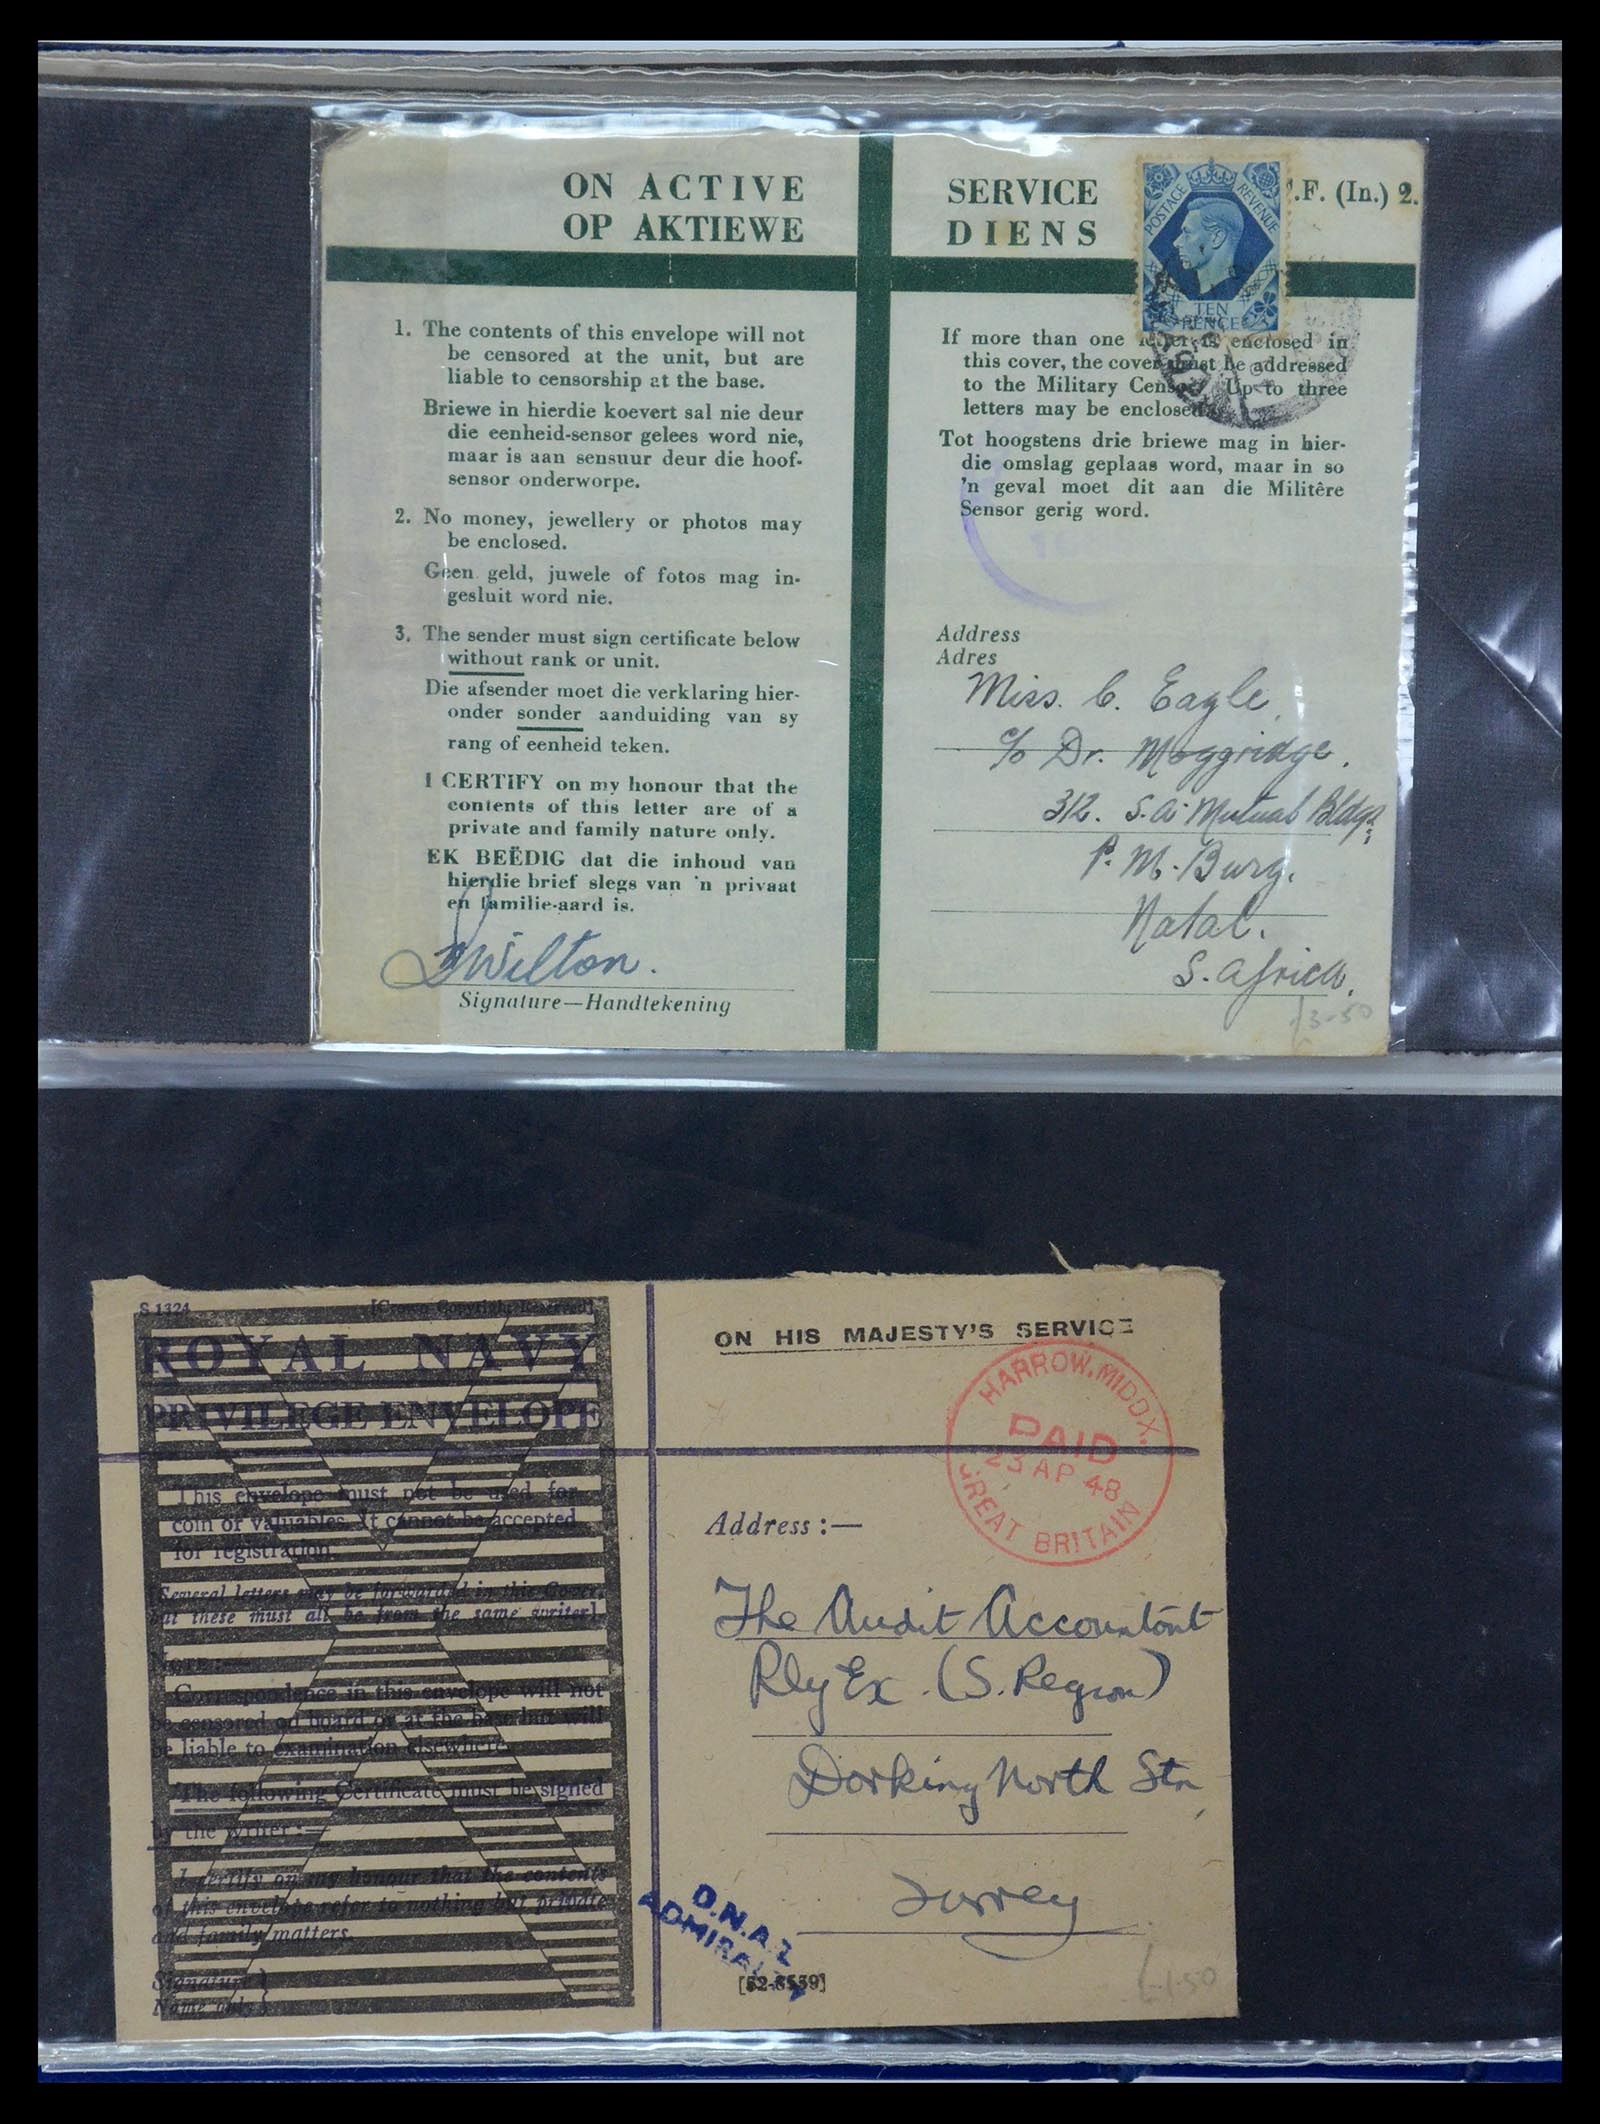 ON ACTIVE SERVICE
OP AKTIEWE DIENS
.F. (In.) 2.
POSTAGE REVENUE
TEN
PENCE
1. The contents of this envelope will not
be censored at the unit, but are
liable to censorship at the base.
Briewe in hierdie koevert sal nie deur
die eenheid-sensor gelees word nie,
maar is aan sensuur deur die hoof-
sensor onderworpe.
2. No money, jewellery or photos may
be enclosed.
Geen geld, juwele of fotos mag in-
gesluit word nie.
3. The sender must sign certificate below
without rank or unit.
Die afsender moet die verklaring hier-
onder sonder aanduiding van sy
rang of eenheid teken.
I CERTIFY on my honour that the
contents of this letter are of a
private and family nature only.
EK BEËDIG dat die inhoud van
hierdie brief slegs van 'n privaat
en familie-aard is.
Wilton.
Signature—Handtekening
If more than one letter is enclosed in
this cover, the cover must be addressed
to the Military Censor. Up to three
letters may be enclosed.
Tot hoogstens drie briewe mag in hier-
die omslag geplaas word, maar in so
'n geval moet dit aan die Militêre
Sensor gerig word.
Address
Adres
Miss. C. Eagle,
c/o Dr. Moggridge,
312. S.A. Mutual Bldgs;
P. M. Burg.
Natal.
S. Africa.
3-50
S 1324 [Crown Copyright Reserved].
ROYAL NAVY
PRIVILEGE ENVELOPE
This envelope must not be used for
coin or valuables. It cannot be accepted
for registration.
[Several letters may be forwarded in this Cover,
but these must all be from the same writer].
NOTE:—
Correspondence in this envelope will not
be censored on board or at the base but will
be liable to examination elsewhere.
The following Certificate must be signed
by the writer:—
I certify on my honour that the contents
of this envelope refer to nothing but private
and family matters.
Signature }
Name only }
ON HIS MAJESTY'S SERVICE
HARROW. MIDDX.
PAID
23 AP 48
GREAT BRITAIN
Address:—
The Audit Accountant
Rly Ex. (S. Region)
Dorking North Stn
Surrey
D.N.A.
ADMIRALTY
[52-8559]
1-50